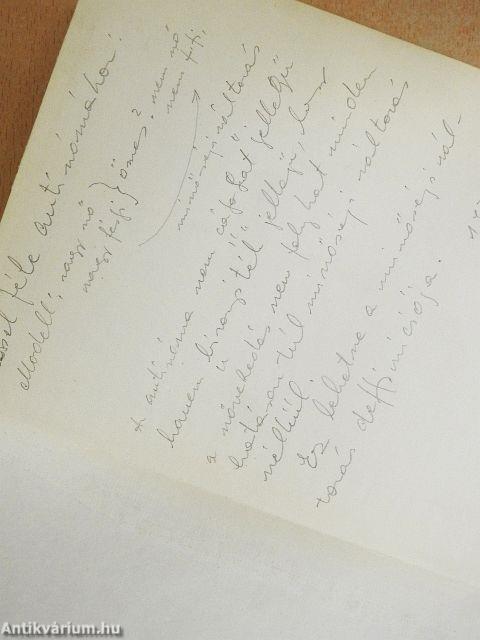 féle antinómiához:
Modell: nagy nő } összes? nem nő
nagy férfi } nem férfi,
minőségi változás
Az antinómia nem cáfolat jellegű
hanem bizonyíték jellegű, hogy
a növekedés nem folyhat minden
határon túl minőségi változás
nélkül!
Ez lehetne a minőségi vál-
tozás deffiníciója.
Antikvárium.hu